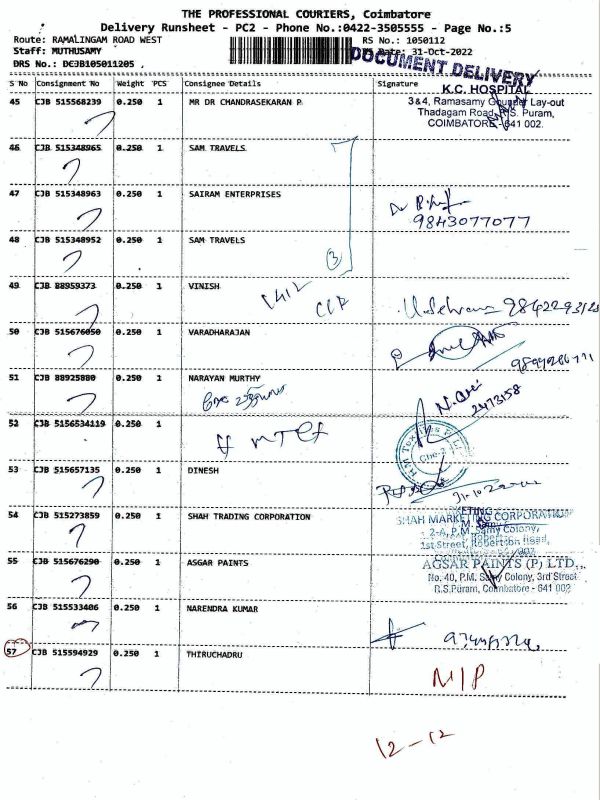 THE PROFESSIONAL COURIERS, Coimbatore
Delivery Runsheet - PC2 - Phone No.:0422-3505555 - Page No.:5
Route: RAMALINGAM ROAD WEST RS No.: 1050112
Staff: MUTHUSAMY Date: 31-Oct-2022
DRS No.: DCJB105011205
DOCUMENT DELIVERY
S No Consignment No Weight PCS Consignee Details Signature
K.C. HOSPITAL
45 CJB 515568239 0.250 1 MR DR CHANDRASEKARAN P
3&4, Ramasamy Gounder Lay-out
Thadagam Road, R.S. Puram,
COIMBATORE - 641 002.
46 CJB 515348965 0.250 1 SAM TRAVELS
47 CJB 515348963 0.250 1 SAIRAM ENTERPRISES
9843077077
48 CJB 515348952 0.250 1 SAM TRAVELS
3
49 CJB 88959373 0.250 1 VINISH
50 CJB 515676050 0.250 1 VARADHARAJAN
51 CJB 88925880 0.250 1 NARAYAN MURTHY
2473158
52 CJB 5156534119 0.250 1
53 CJB 515657135 0.250 1 DINESH
54 CJB 515273859 0.250 1 SHAH TRADING CORPORATION
SHAH MARKETING CORPORATION
2-A, P.M. Samy Colony,
1st Street, Robertson Road,
55 CJB 515676290 0.250 1 ASGAR PAINTS
AGSAR PAINTS (P) LTD.,
No. 40, P.M. Samy Colony, 3rd Street
R.S.Puram, Coimbatore - 641 002
56 CJB 515533406 0.250 1 NARENDRA KUMAR
57 CJB 515594929 0.250 1 THIRUCHADRU
N/P
12-12